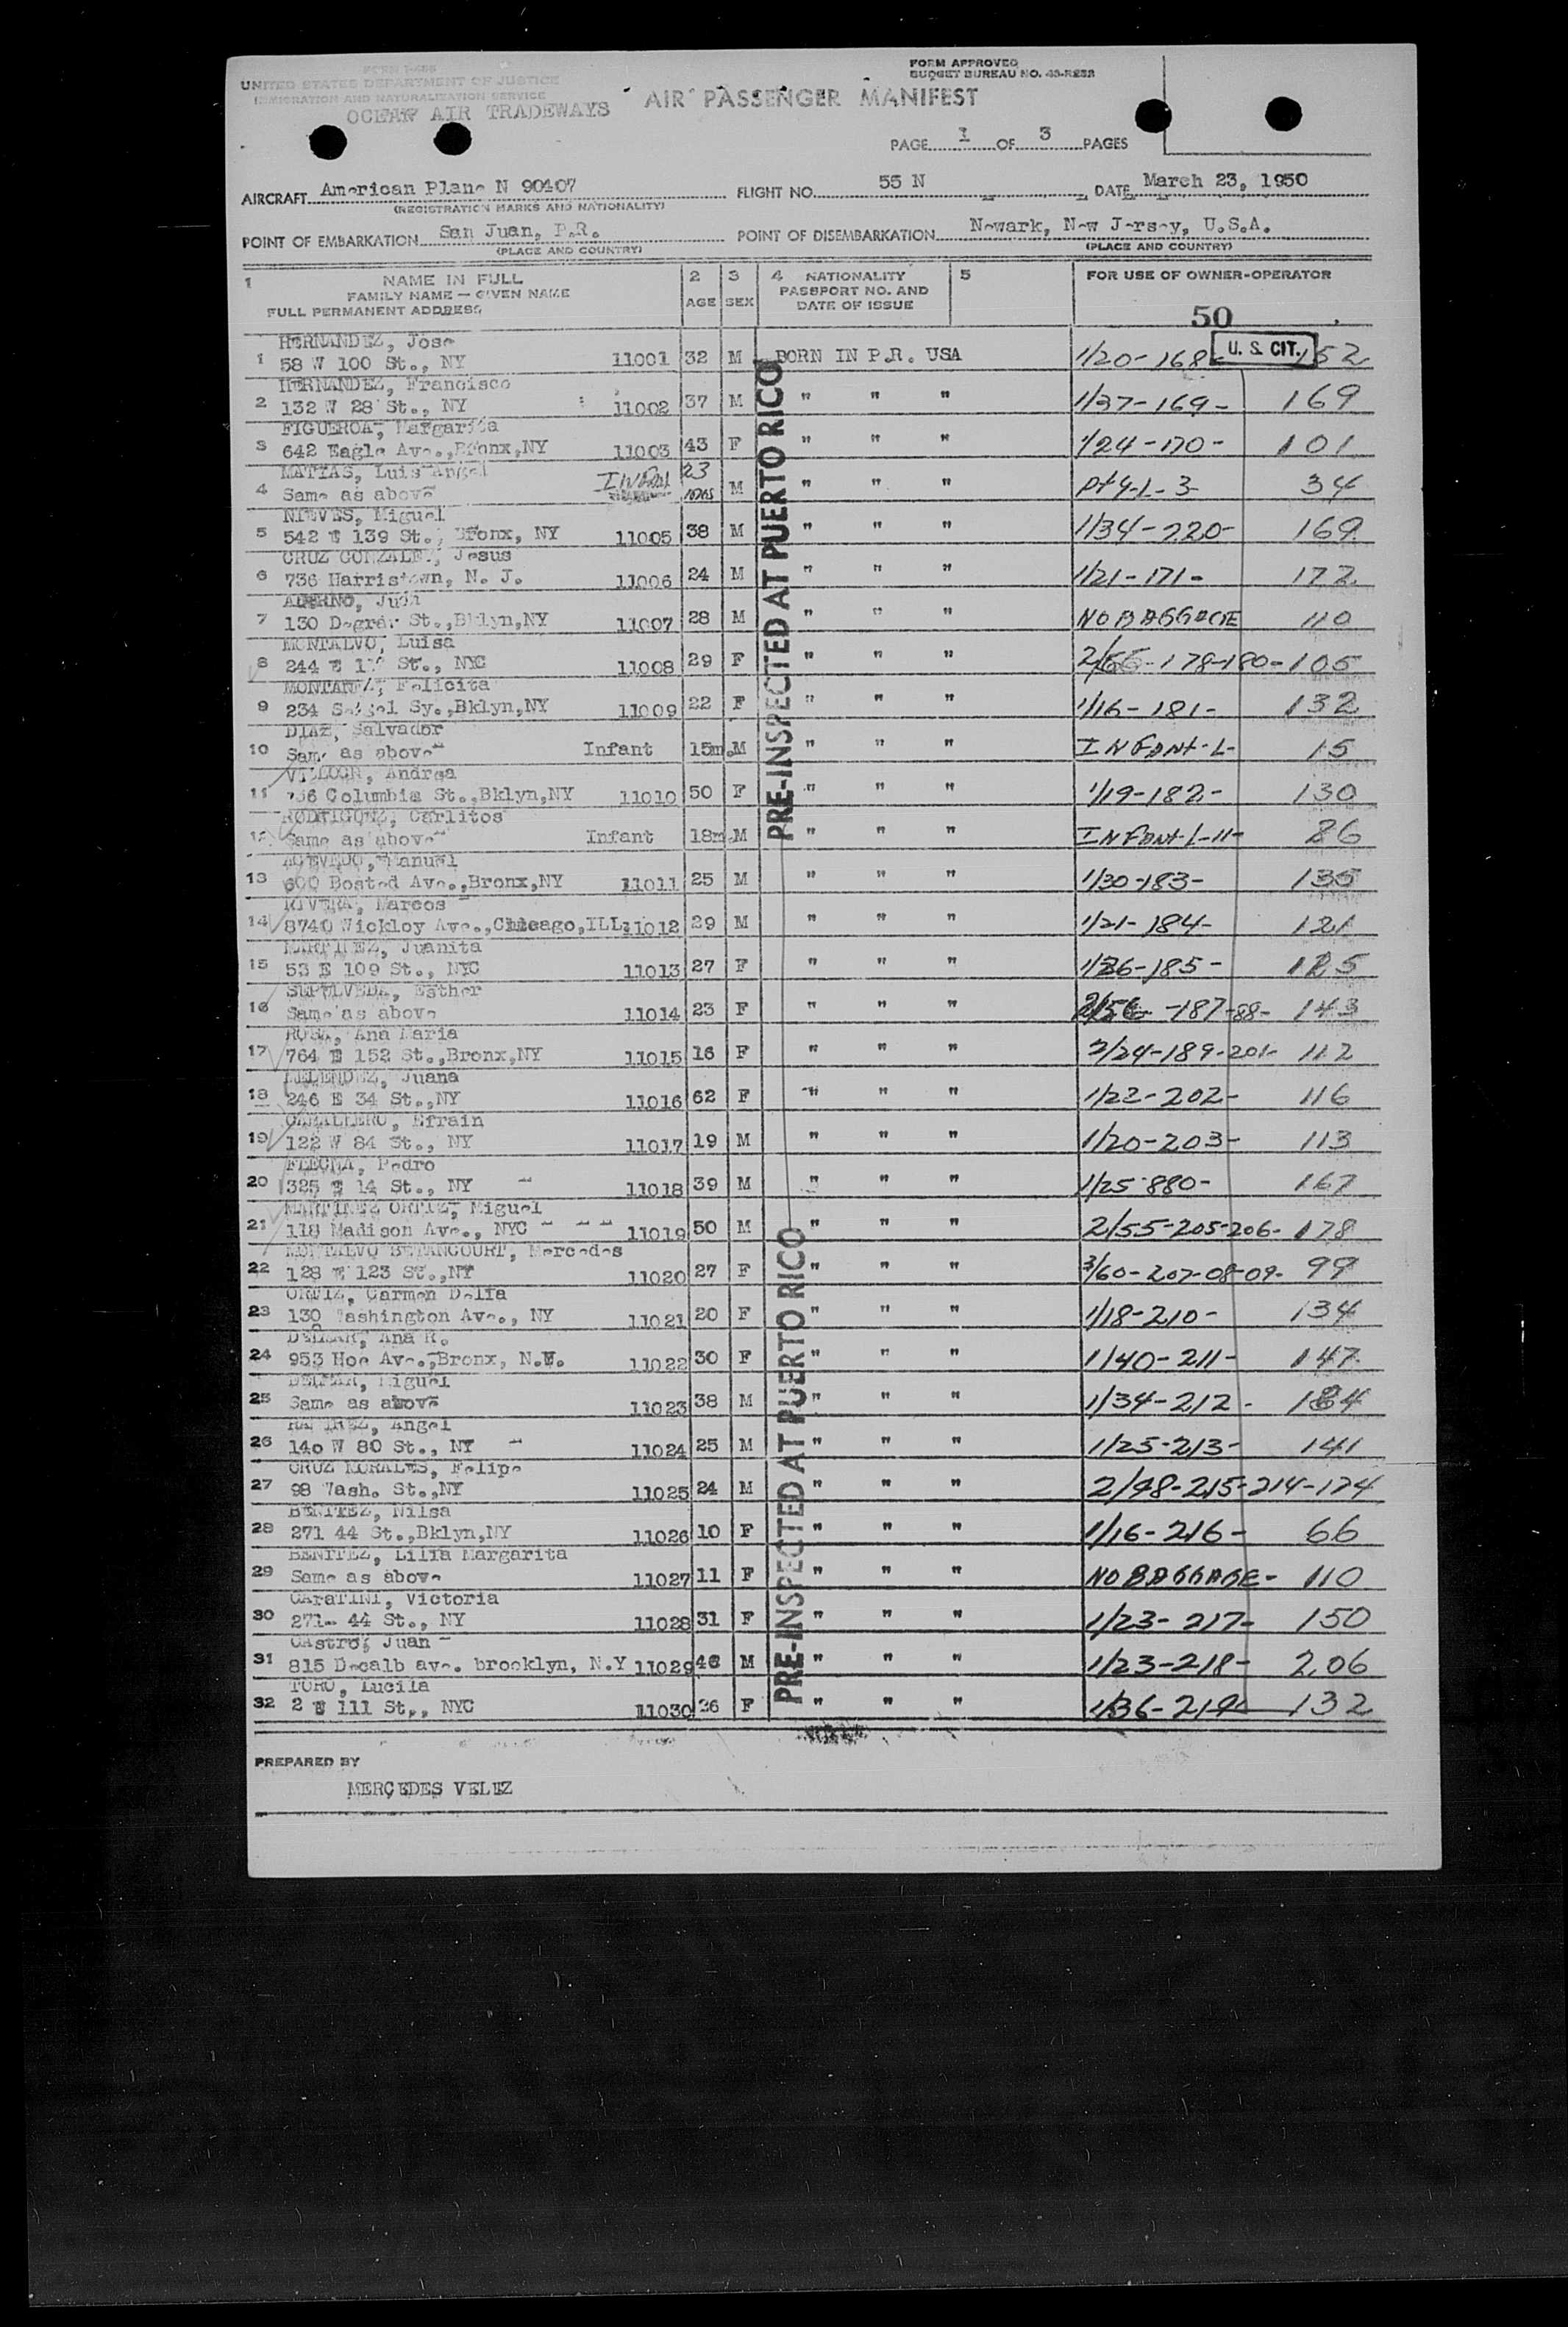 FORM APPROVED
BUDGET BUREAU NO. 43-R238
UNITED STATES DEPARTMENT OF JUSTICE
IMMIGRATION AND NATURALIZATION SERVICE
OCEAN AIR TRADEWAYS
AIR PASSENGER MANIFEST
PAGE 1 OF 3 PAGES
AIRCRAFT American Plane N 90407 FLIGHT NO. 55 N DATE March 23, 1950
(REGISTRATION MARKS AND NATIONALITY)
POINT OF EMBARKATION San Juan, P.R. POINT OF DISEMBARKATION Newark, New Jersey, U.S.A.
(PLACE AND COUNTRY) (PLACE AND COUNTRY)
1 NAME IN FULL 2 3 4 NATIONALITY 5 FOR USE OF OWNER-OPERATOR
FAMILY NAME — GIVEN NAME AGE SEX PASSPORT NO. AND
FULL PERMANENT ADDRESS DATE OF ISSUE
50
U. S. CIT.
HERNANDEZ, Jose
1 58 W 100 St., NY 11001 32 M BORN IN P.R. USA 1/20-168- 152
HERNANDEZ, Francisco
2 132 W 28 St., NY 11002 37 M " " " 1/37-169- 169
FIGUEROA, Margarita
3 642 Eagle Ave.,Bronx,NY 11003 43 F " " " 1/24-170- 101
MATIAS, Luis Angel
4 Same as above 23 M " " " 34
NIEVES, Miguel
5 542 E 139 St., Bronx, NY 11005 38 M " " " 1/34-220- 169
CRUZ GONZALEZ, Jesus
6 736 Harristown, N. J. 11006 24 M " " " 1/21-171- 172
Juan
7 130 Degraw St.,Bklyn,NY 11007 28 M " " " NO BAGGAGE 110
MONTALVO, Luisa
8 244 E St., NYC 11008 29 F " " " 2/66-178-180- 105
MONTANEZ, Felicita
9 234 Seigel Sy.,Bklyn,NY 11009 22 F " " " 1/16-181- 132
DIAZ, Salvador
10 Same as above Infant 15m. M " " " INFANT-L- 15
Andrea
11 Columbia St.,Bklyn,NY 11010 50 F " " " 1/19-182- 130
RODRIGUEZ, Carlitos
12 Same as above Infant 18m. M " " " INFANT-L-11- 26
ACEVEDO, Manuel
13 600 Bosted Ave.,Bronx,NY 11011 25 M " " " 1/30-183- 135
RIVERA, Marcos
14 8740 Wickloy Ave.,Chicago,ILL. 11012 29 M " " " 1/21-184- 121
MARTINEZ, Juanita
15 53 E 109 St., NYC 11013 27 F " " " 1/26-185- 125
SEPULVEDA, Esther
16 Same as above 11014 23 F " " " 2/56-187-88- 143
ROSA, Ana Maria
17 764 E 152 St.,Bronx,NY 11015 16 F " " " 2/24-189-201- 112
MELENDEZ, Juana
18 246 E 34 St.,NY 11016 62 F " " " 1/22-202- 116
CABALLERO, Efrain
19 122 W 84 St., NY 11017 19 M " " " 1/20-203- 113
FLECHA, Pedro
20 325 E 14 St., NY 11018 39 M " " " 1/25-880- 167
MARTINEZ ORTIZ, Miguel
21 118 Madison Ave., NYC 11019 50 M " " " 2/55-205-206- 178
MONTALVO BETANCOURT, Mercedes
22 128 E 123 St.,NY 11020 27 F " " " 3/60-207-08-09- 99
ORTIZ, Carmen Delia
23 130 Washington Ave., NY 11021 20 F " " " 1/18-210- 134
Ana R.
24 953 Hoe Ave.,Bronx, N.Y. 11022 30 F " " " 1/40-211- 147
Miguel
25 Same as above 11023 38 M " " " 1/34-212- 184
RAMIREZ, Angel
26 140 W 80 St., NY 11024 25 M " " " 1/25-213- 141
CRUZ MORALES, Felipe
27 98 Wash. St.,NY 11025 24 M " " " 2/48-215-214-174
BENITEZ, Nilsa
28 271 44 St.,Bklyn,NY 11026 10 F " " " 1/16-216- 66
BENITEZ, Lilia Margarita
29 Same as above 11027 11 F " " " NO BAGGAGE- 110
CARATINI, Victoria
30 271- 44 St., NY 11028 31 F " " " 1/23-217- 150
CAstro, Juan
31 815 Decalb ave. brooklyn, N.Y 11029 46 M " " " 1/23-218- 206
TORO, Lucila
32 2 E 111 St,, NYC 11030 26 F " " " 1/36-219- 132
PRE-INSPECTED AT PUERTO RICO
PRE-INSPECTED AT PUERTO RICO
PREPARED BY
MERCEDES VELEZ